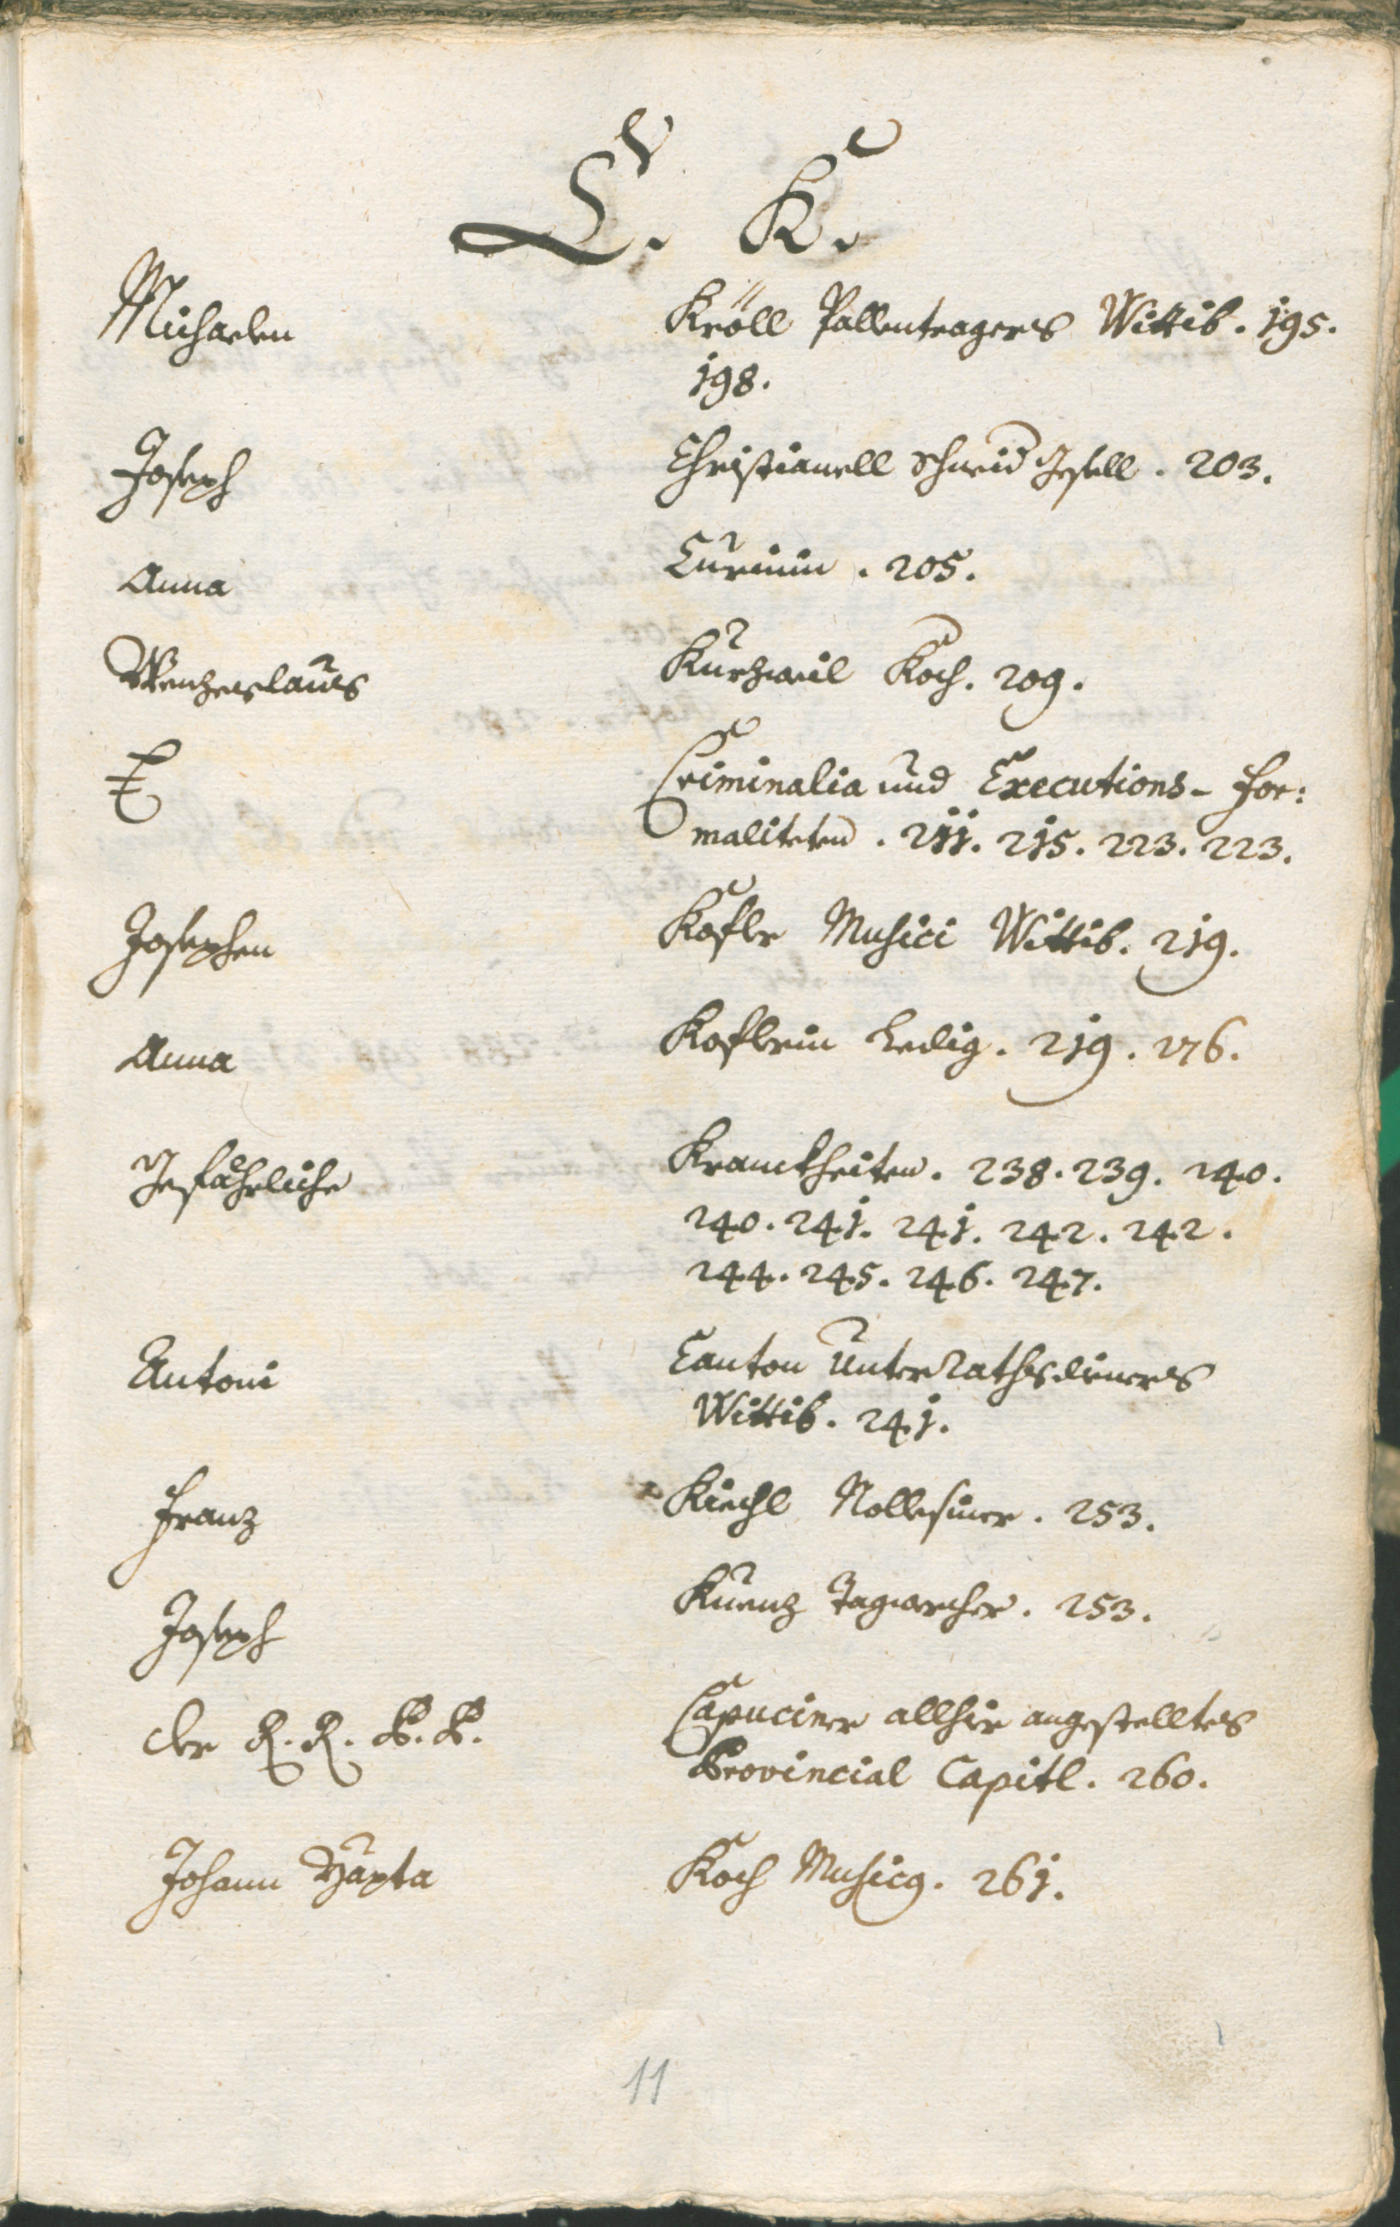 C. K.
Michaelen Kröll Pallentragers Wittib. 195.
198.
Joseph Christianell Schmid Gesell. 203.
Anna Curinin. 205.
Wenzeslaus Kurzweil Koch. 209.
Criminalia und Executions- For:
maliteten. 211. 215. 223. 223.
Josephen Kofler Musici Wittib. 219.
Anna Koflerin Ledig. 219. 276.
Gefährliche Kranckheiten. 238. 239. 240.
240. 241. 241. 242. 242.
244. 245. 246. 247.
Antoni Canton Unter Rathsdieners
Wittib. 241.
Franz Kiechl 253.
Joseph Kuenz Tagwercher. 253.
der R. R. P. P. Capuciner allhir angestelltes
Provincial Capitl. 260.
Johann Bapta Koch Musicq. 261.
11